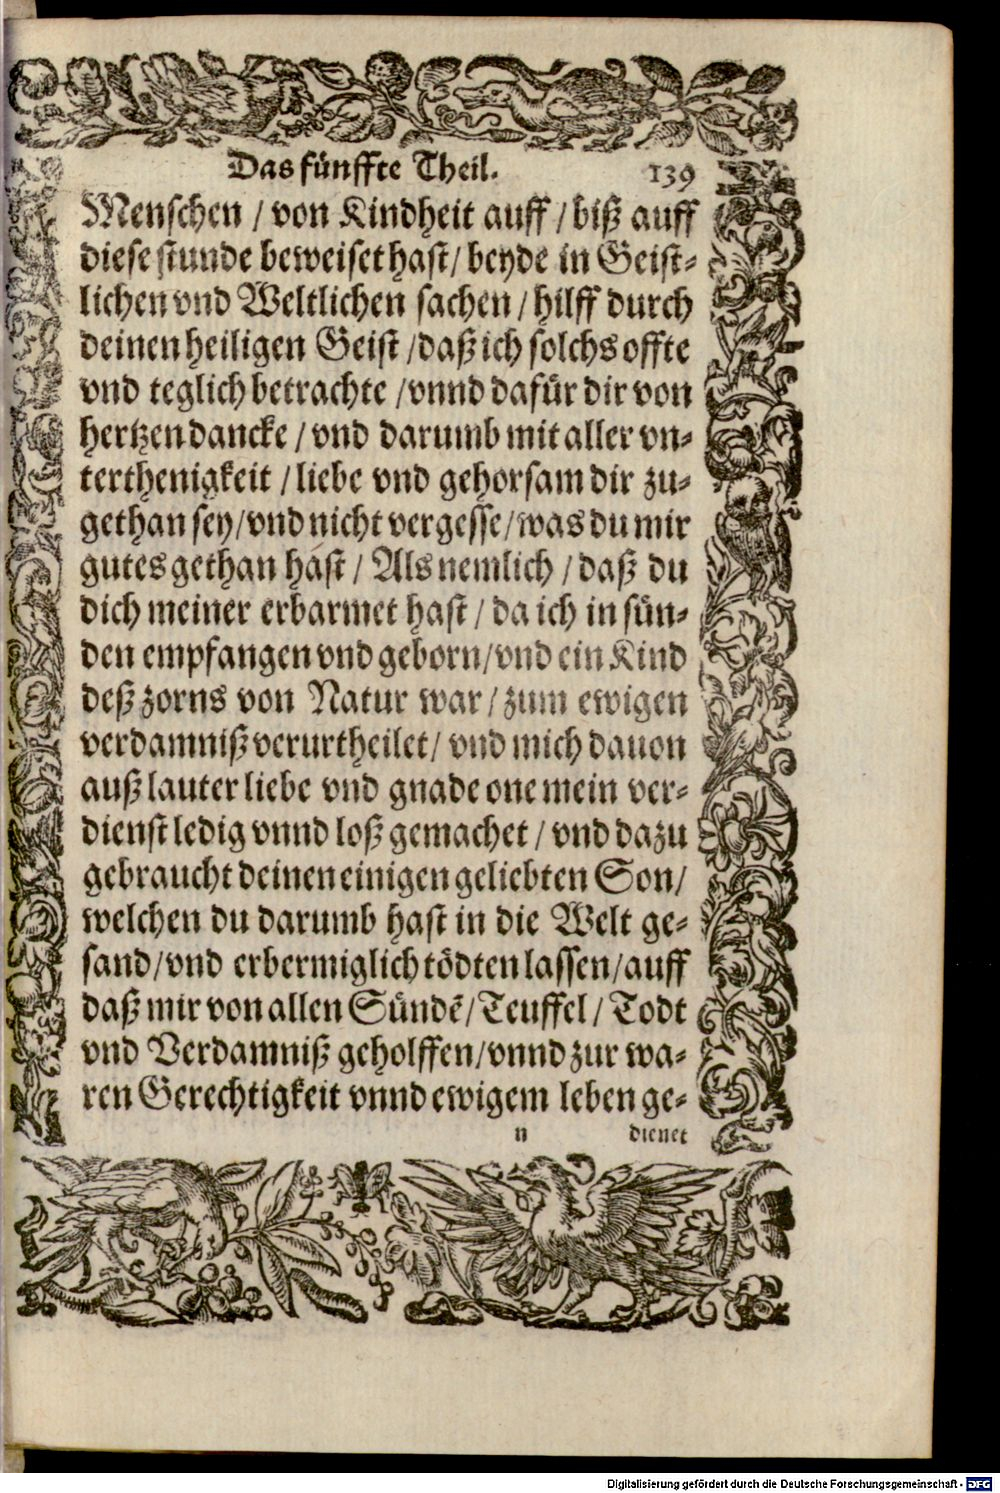 Das fünffte Theil. 139
Menschen / von Kindheit auff / biß auff
diese stunde beweiset hast / beyde in Geist-
lichen vnd Weltlichen sachen / hilff durch
deinen heiligen Geist / daß ich solchs offte
vnd teglich betrachte / vnnd dafür dir von
hertzen dancke / vnd darumb mit aller vn-
terthenigkeit / liebe vnd gehorsam dir zu-
gethan sey / vnd nicht vergesse / was du mir
gutes gethan hast / Als nemlich / daß du
dich meiner erbarmet hast / da ich in sün-
den empfangen vnd geborn / vnd ein Kind
deß zorns von Natur war / zum ewigen
verdamniß verurtheilet / vnd mich dauon
auß lauter liebe vnd gnade one mein ver-
dienst ledig vnnd loß gemachet / vnd dazu
gebraucht deinen einigen geliebten Son /
welchen du darumb hast in die Welt ge-
sand / vnd erbermiglich tödten lassen / auff
daß mir von allen Sündẽ / Teuffel / Todt
vnd Verdamniß geholffen / vnnd zur wa-
ren Gerechtigkeit vnnd ewigem leben ge-
n dienet
Digitalisierung gefördert durch die Deutsche Forschungsgemeinschaft - DFG